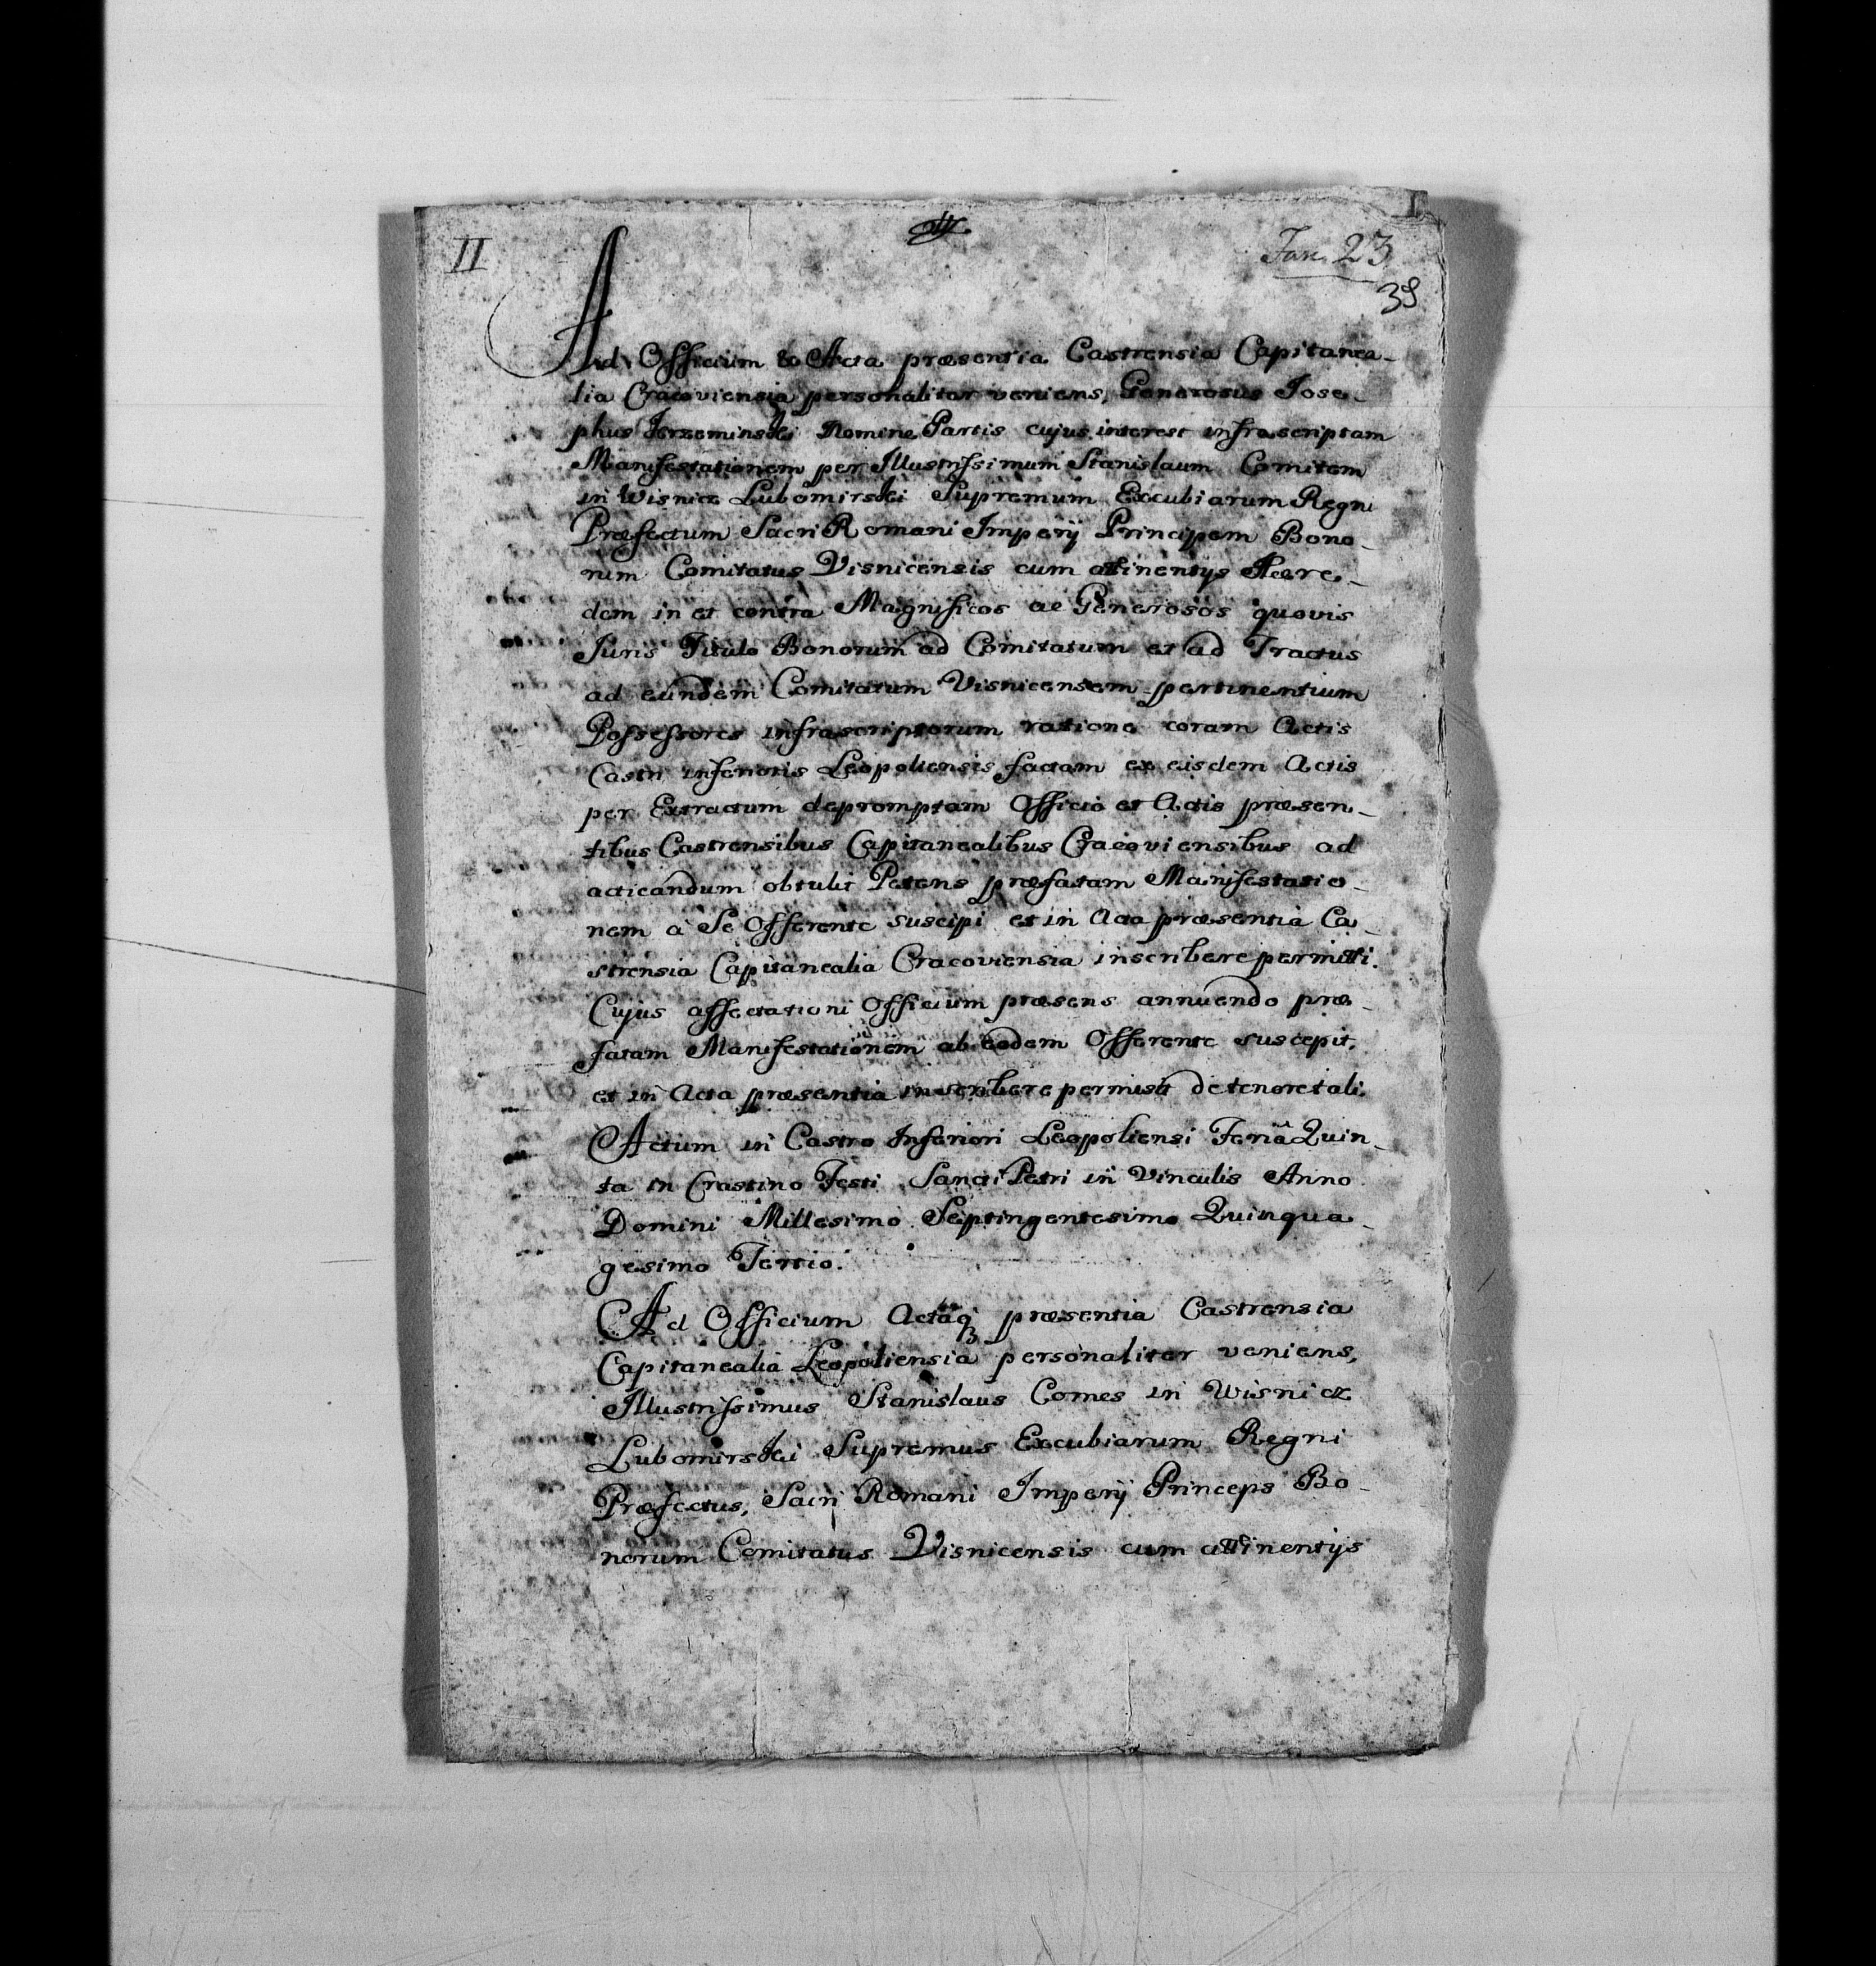 I
II
Fasc. 23
39
Ad Officium & Acta præsentia Castrensia Capitanea-
lia Cracoviensia personaliter veniens, Generosus Jose-
phus Nomine Partis cujus interest infrascriptam
Manifestationem per Illustrissimum Stanislaum Comitem
in Wisnicz Lubomirski Supremum Excubiarum Regni
Præfectum Sacri Romani Imperij Principem Bono-
rum Comitatus Visnicensis cum attinentijs Hære-
dem in et contra Magnificos ac Generosos quovis
Juris Titulo Bonorum ad Comitatum et ad Tractus
ad eundem Comitatum Visnicensem pertinentium
Possessores infrascriptorum ratione coram Actis
Castri inferioris Leopoliensis factam ex eisdem Actis
per Extractum depromptam Officio et Actis præsen-
tibus Castrensibus Capitanealibus Cracoviensibus ad
acticandum obtulit Petens præfatam Manifestatio-
nem à Se Offerente suscipi et in Acta præsentia Ca-
strensia Capitanealia Cracoviensia inscribere permitti.
Cujus affectationi Officium præsens annuendo præ-
fatam Manifestationem ab eodem Offerente suscepit,
et in Acta præsentia inscribere permisit de tenore tali.
Actum in Castro Inferiori Leopoliensi Feriâ Quin-
ta in Crastino Festi Sancti Petri in Vinculis Anno
Domini Millesimo Septingentesimo Quinqua-
gesimo Tertio.
Ad Officium Actaq3 præsentia Castrensia
Capitanealia Leopoliensia personaliter veniens,
Illustrissimus Stanislaus Comes in Wisnicz
Lubomirski Supremus Excubiarum Regni
Præfectus, Sacri Romani Imperij Princeps Bo-
norum Comitatus Visnicensis cum attinentijs